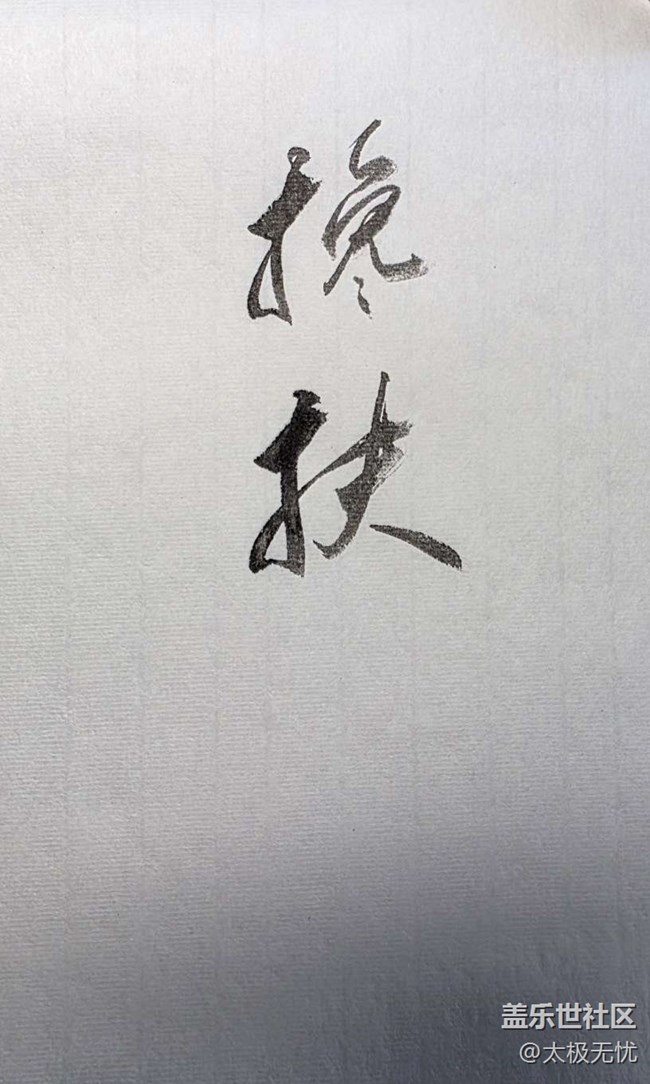 搀
扶
盖乐世社区
@太极无忧